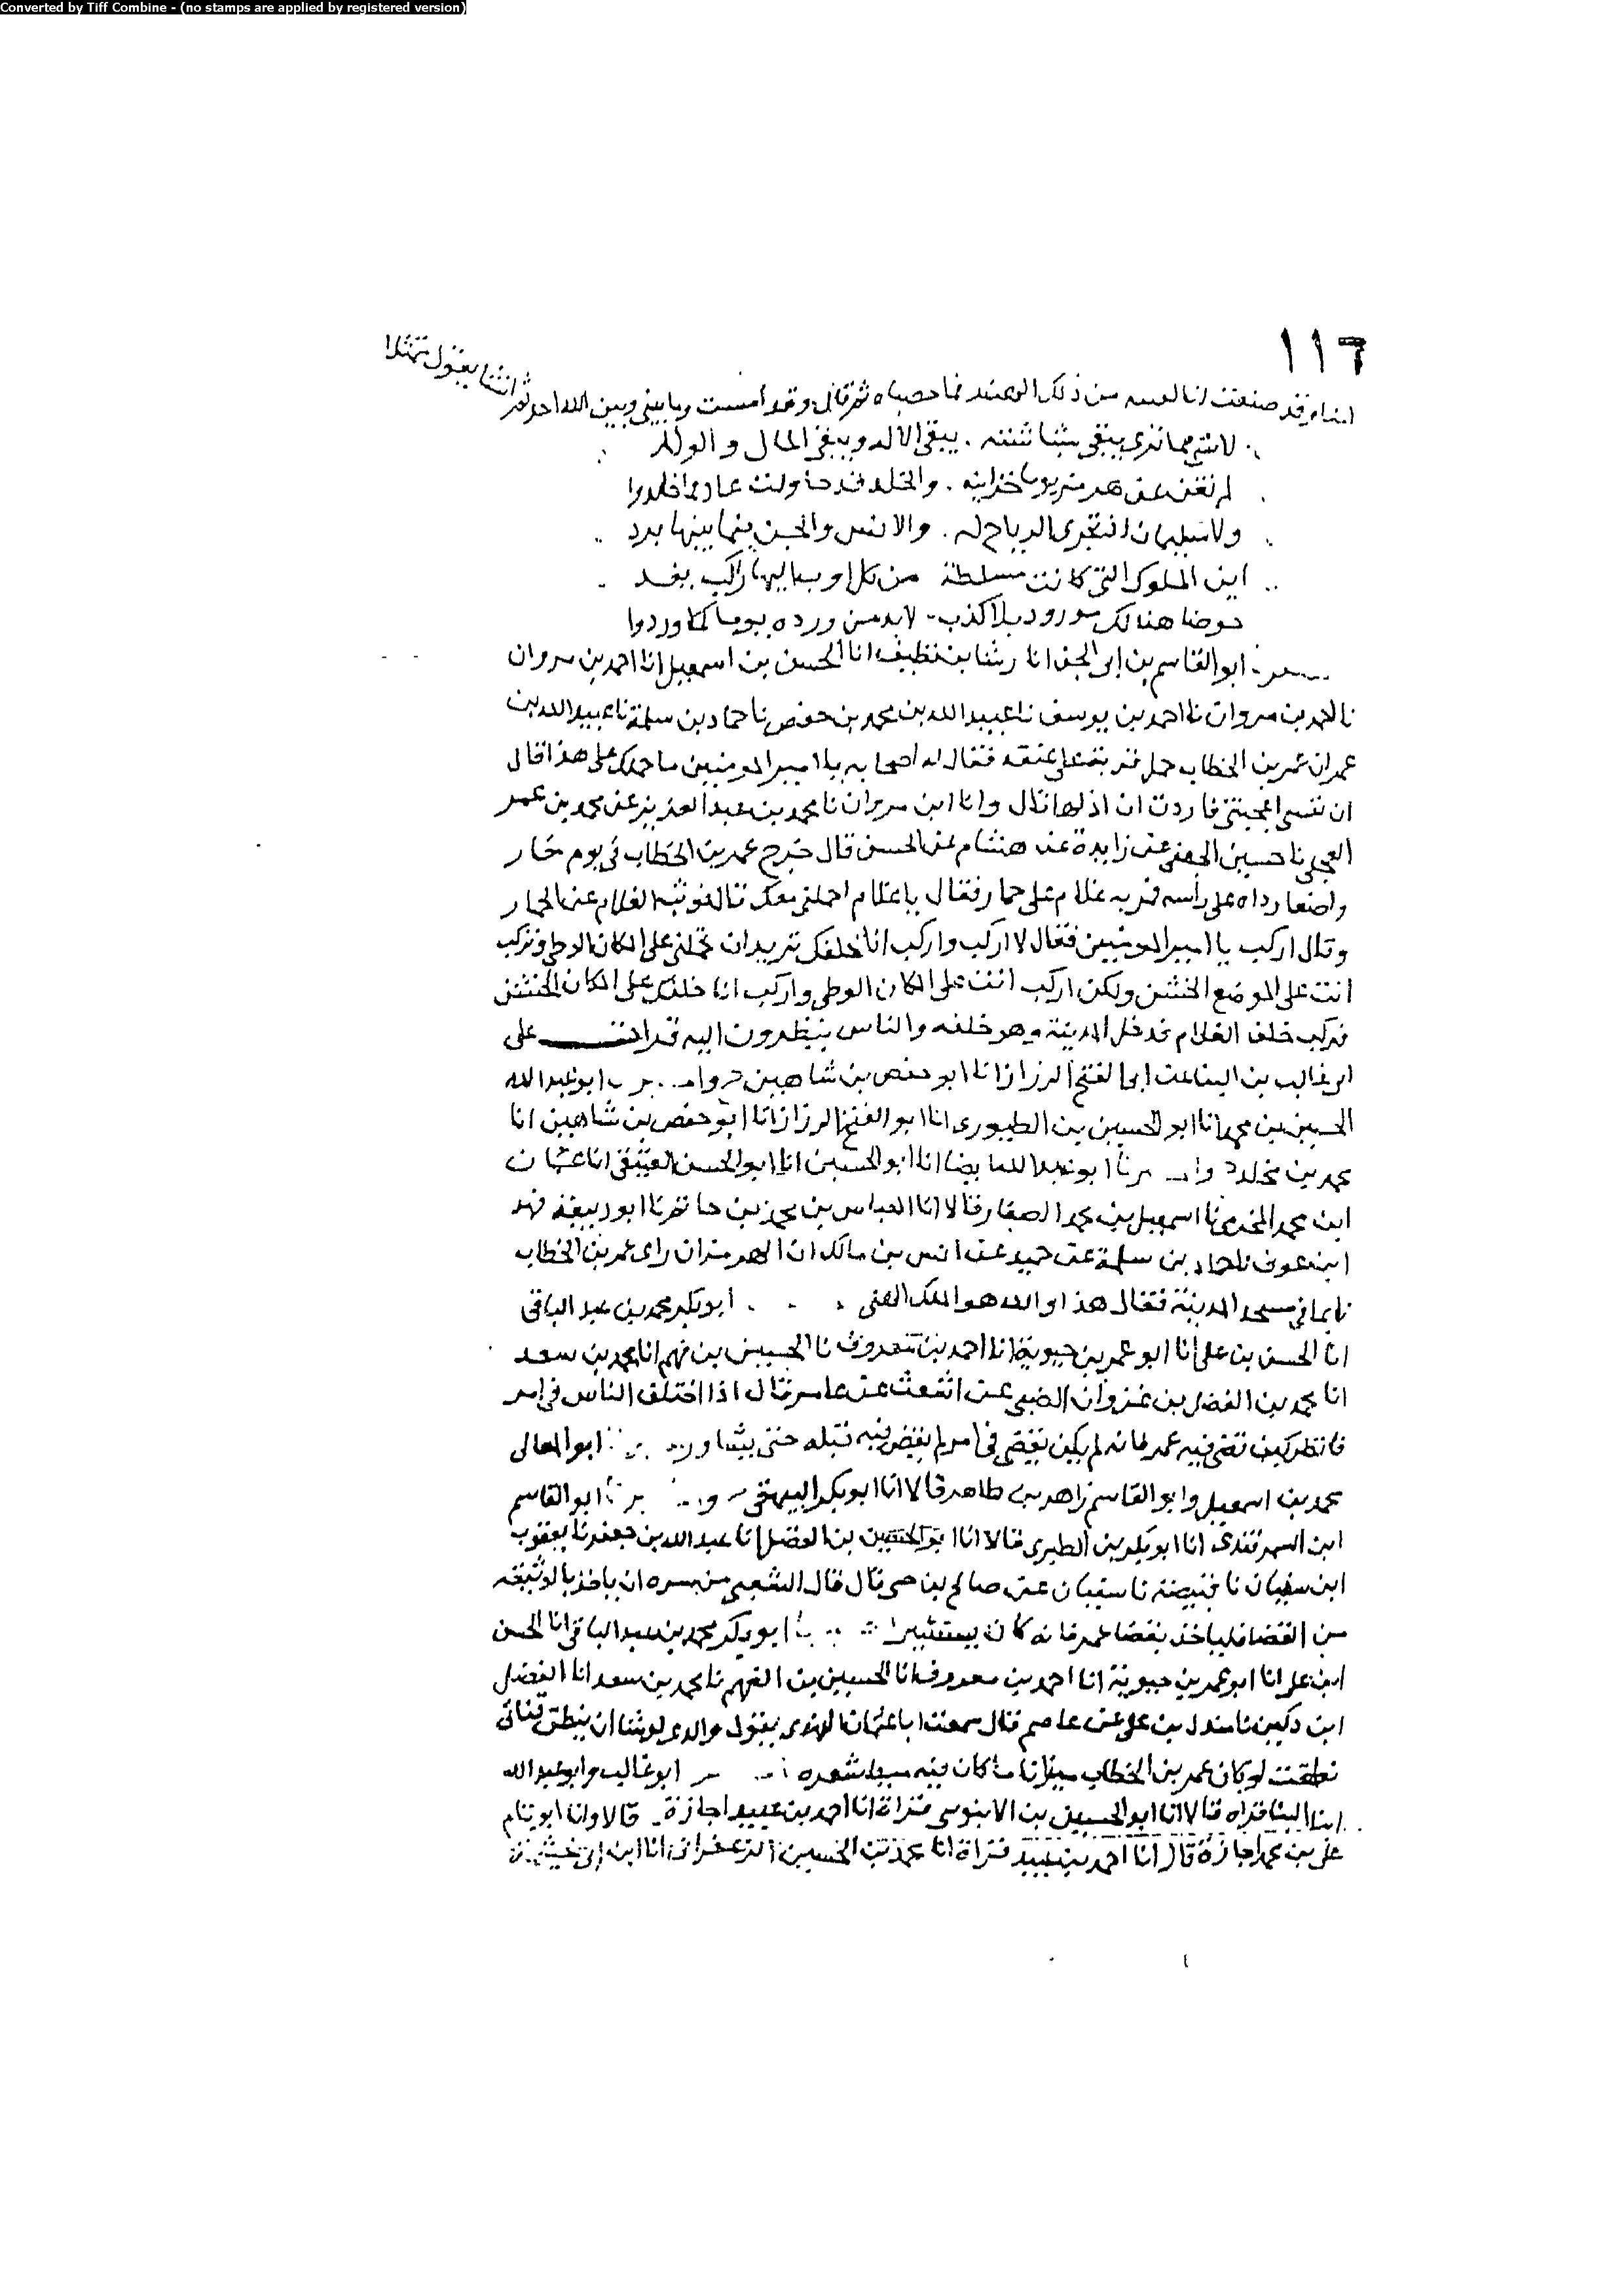 Converted by Tiff Combine - (no stamps are applied by registered version)
١١٦
من ذلك وقد امست وما بيني وبين الله احد ثم انشا يقول متمثلا
لا شي مما ترى يبقى بشاشته . يبقى الاله ويفنى المال والولد
لم تغن عن هرمز يوما خزاينه . والخلد قد حاولت عاد فما خلدوا
ولا سليمان اذ تجرى الرياح له . والانس والجن فيما بينها برد
اين الملوك التي كانت مسلطة من كل اوب اليها راكب يفد
حوضا هنالك مورود بلا كذب - لا بد من ورده يوما كما وردوا
ابو القاسم بن انا رشا بن نظيف انا الحسن بن اسمعيل انا احمد بن مروان
نا احمد بن يوسف نا عبيد الله بن محمد بن حفص نا حماد بن سلمة نا عبيد الله بن
عمر ان عمر بن الخطاب حمل قربة على عنقه فقال له اصحابه يا امير المومنين ما حملك على هذا قال
ان نفسي اعجبتني فاردت ان اذلها قال وانا ابن مروان نا محمد بن عبد العزيز عن محمد بن عمر
نا حسين الجعفي عن زايدة عن هشام عن الحسن قال خرج عمر بن الخطاب في يوم حار
واضعا رداه على رأسه فمر به غلام على حمار فقال يا غلام احملني معك قال فوثب الغلام عن الحمار
وقال اركب يا امير المومنين فقال لا اركب واركب انا خلفك تريد ان تحملني على المكان الوطي وتركب
انت على الموضع الخشن ولكن اركب انت على المكان الوطي واركب انا خلفك على المكان الخشن
فركب خلف الغلام فدخل المدينة وهو خلفه والناس ينظرون اليه على
ابي غالب بن البنا عن ابي الفتح الرزاز انا ابو حفص بن شاهين ابو عبد الله
الحسين بن محمد انا ابو الحسين بن الطيوري انا ابو الفتح الرزاز انا ابو حفص بن شاهين انا
محمد بن مخلد ابو عبد الله ايضا انا ابو الحسين انا ابو الحسن العتيقي انا عثمان
ابن محمد نا اسمعيل بن محمد الصفار قالا انا العباس بن محمد بن حاتم نا ابو ربيعة فهد
ابن عوف نا حماد بن سلمة عن حميد عن انس بن مالك ان الهرمزان راى عمر بن الخطاب
نايما في مسجد المدينة فقال هذا والله هو الملك الهني ابو بكر محمد بن عبد الباقي
انا الحسن بن علي انا ابو عمر بن حيوية انا احمد بن معروف نا الحسين بن فهم انا محمد بن سعد
انا محمد بن الفضل بن غزوان الضبي عن اشعث عن عامر قال اذا اختلف الناس في امر
فانظر كيف قضى فيه عمر فانه لم يكن يقضي في امر لم يقض فيه قبله حتى يشاور ابو المعالي
محمد بن اسمعيل وابو القاسم زاهد بن طاهر قالا انا ابو بكر البيهقي ابو القاسم
ابن السمرقندي انا ابو بكر بن الطبري قالا انا ابو الحسين بن الفضل انا عبد الله بن جعفر نا يعقوب
ابن سفيان نا قبيصة نا سفيان عن صالح بن حي قال قال الشعبي من سره ان ياخذ بالوثيقة
من القضا فلياخذ بقضا عمر فانه كان يستشير ابو بكر محمد بن عبد الباقي انا الحسن
ابن علي انا ابو عمر بن حيوية انا احمد بن معروف انا الحسين بن الفهم نا محمد بن سعد انا الفضل
ابن دكين نا مندل بن علي عن عاصم قال سمعت ابا عثمان النهدي يقول والذي لو شا ان ينطق قناتي
نطقت لو كان عمر بن الخطاب ميزانا ما كان فيه ميط شعره ابو غالب وابو عبد الله
ابنا البنا قراه قالا انا ابو الحسين بن الابنوسي قراة انا احمد بن عبيد اجازة قالا وانا ابو تمام
علي بن محمد اجازة قال انا احمد بن عبيد قراة انا محمد بن الحسين الزعفراني انا ابن ابي خيثمة